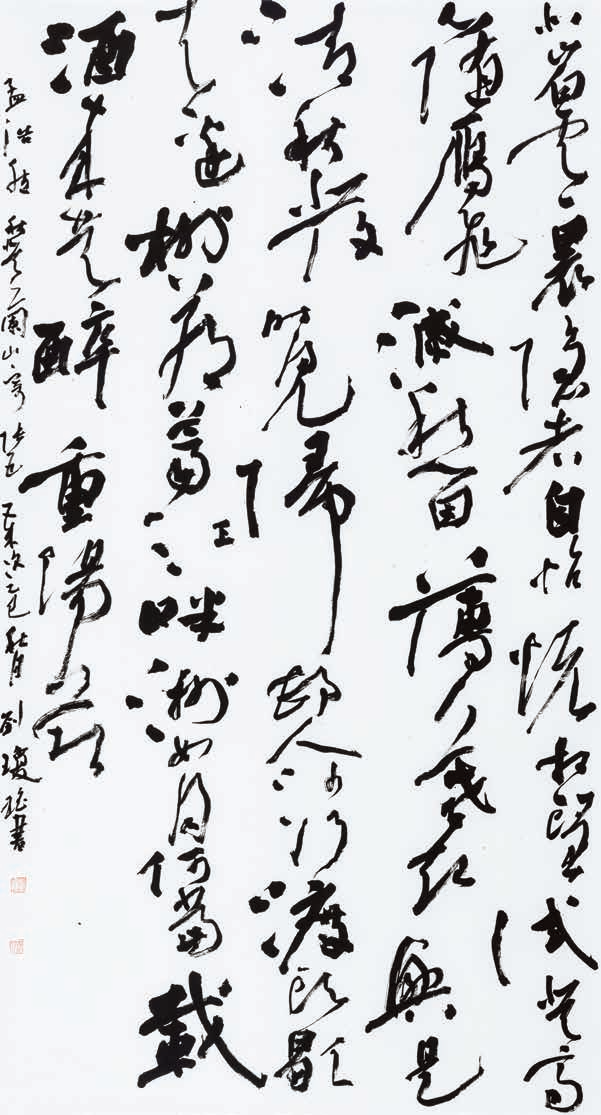 北山白雲裏隱者自怡悅相望試登高
心隨鴈飛滅愁因薄暮起興是
清秋發時見歸邨人沙行渡頭歇
天邊樹若薺江畔洲如月何當載
酒來共醉重陽節
孟浩然秋登蘭山寄張五 歲次乙巳秋月劉瓊書